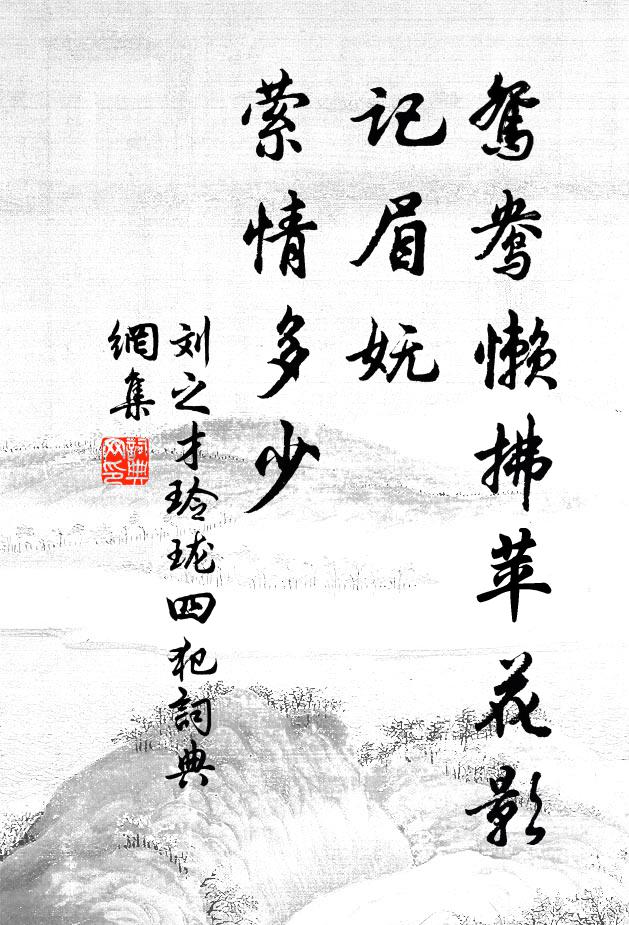 鸳鸯懒拂苹花影
记眉妩
萦情多少
刘之才玲珑四犯詞典
網集
詞典